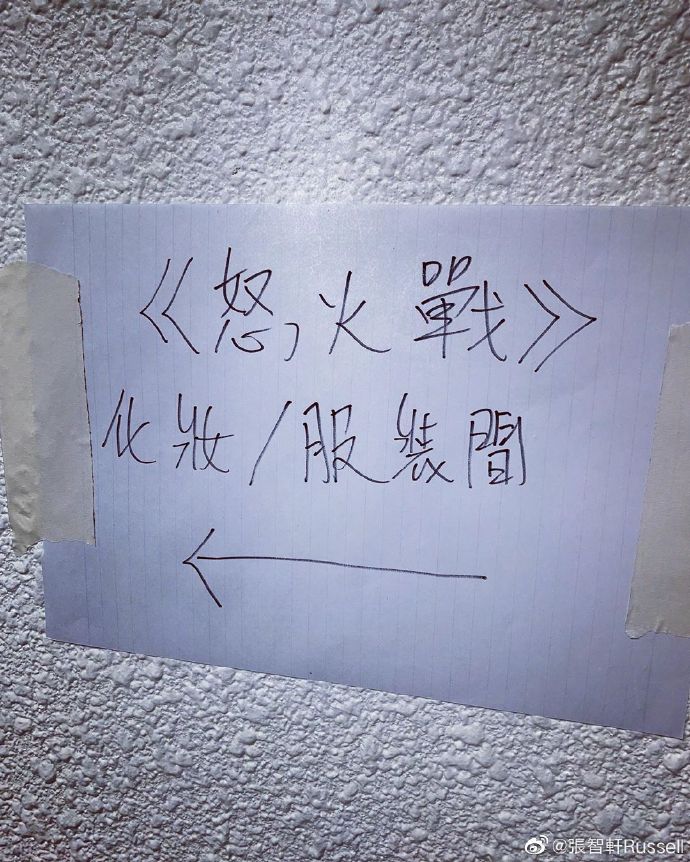 《怒火戰》
化妝/服裝間
@張智軒Russell